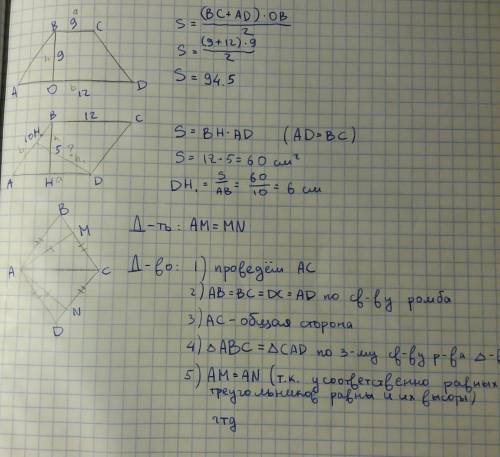 a
B 9 C
h 9
A O b 12 D
S = (BC+AD)·OB / 2
S = (9+12)·9 / 2
S = 94.5
B 12 C
10 H₁
h
5
A H a D
S = BH·AD (AD=BC)
S = 12·5 = 60 см²
DH₁ = S/AB = 60/10 = 6 см
B
M
A C
N
D
Д-ть: AM=MN
Д-во: 1) проведём AC
2) AB=BC=DC=AD по св-ву ромба
3) AC-общая сторона
4) △ABC=△CAD по 3-му св-ву р-ва △-
5) AM=AN (т.к. у соответственно равных
треугольников равны и их высоты)
чтд